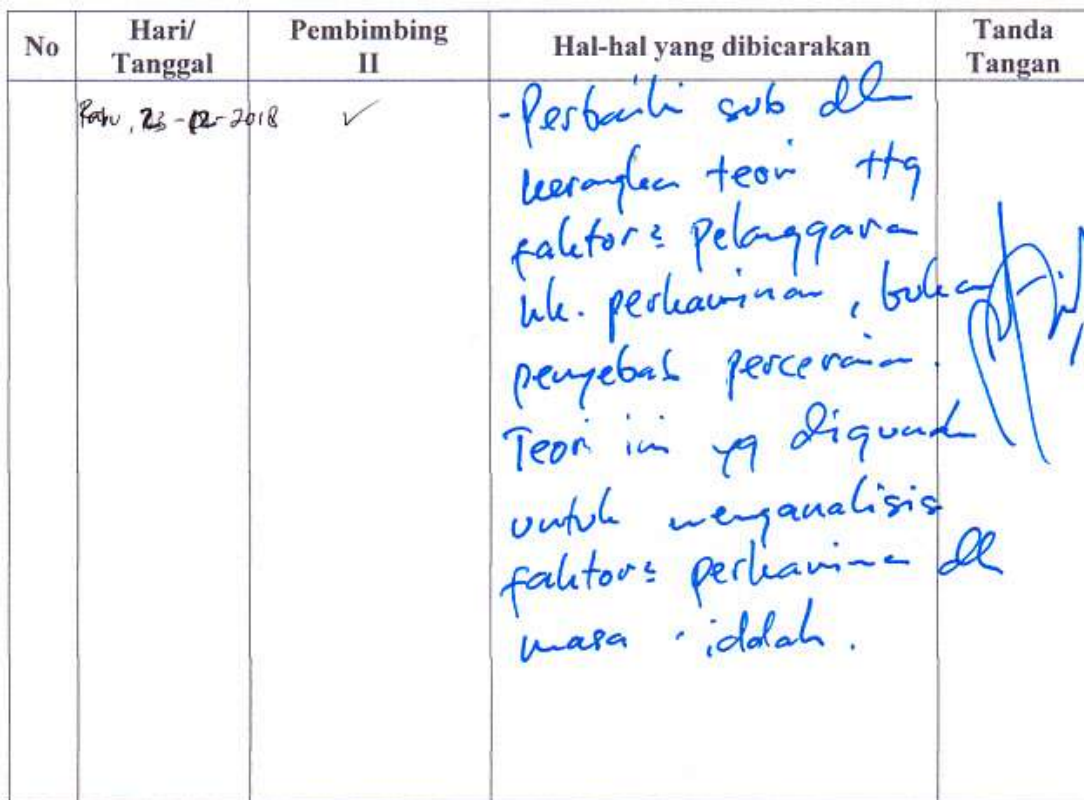 No
Hari/
Tanggal
Pembimbing
II
Hal-hal yang dibicarakan
Tanda
Tangan
Rabu, -2018 ✓
-Perbaiki sub dlm
kerangka teori ttg
faktor2 pelanggaran
hk. perkawinan, bukan
penyebab perceraian.
Teori ini yg digunakan
untuk menganalisis
faktor2 perkawinan dlm
masa iddah.